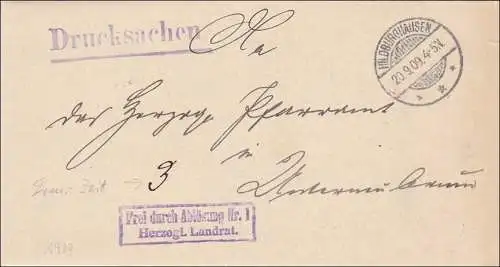 Drucksachen
An
HILDBURGHAUSEN
20.9.09.4-5N.
das Herzogl. Pfarramt
in
3
Unterneubrunn
Frei durch Ablösung Nr. 1
Herzogl. Landrat.